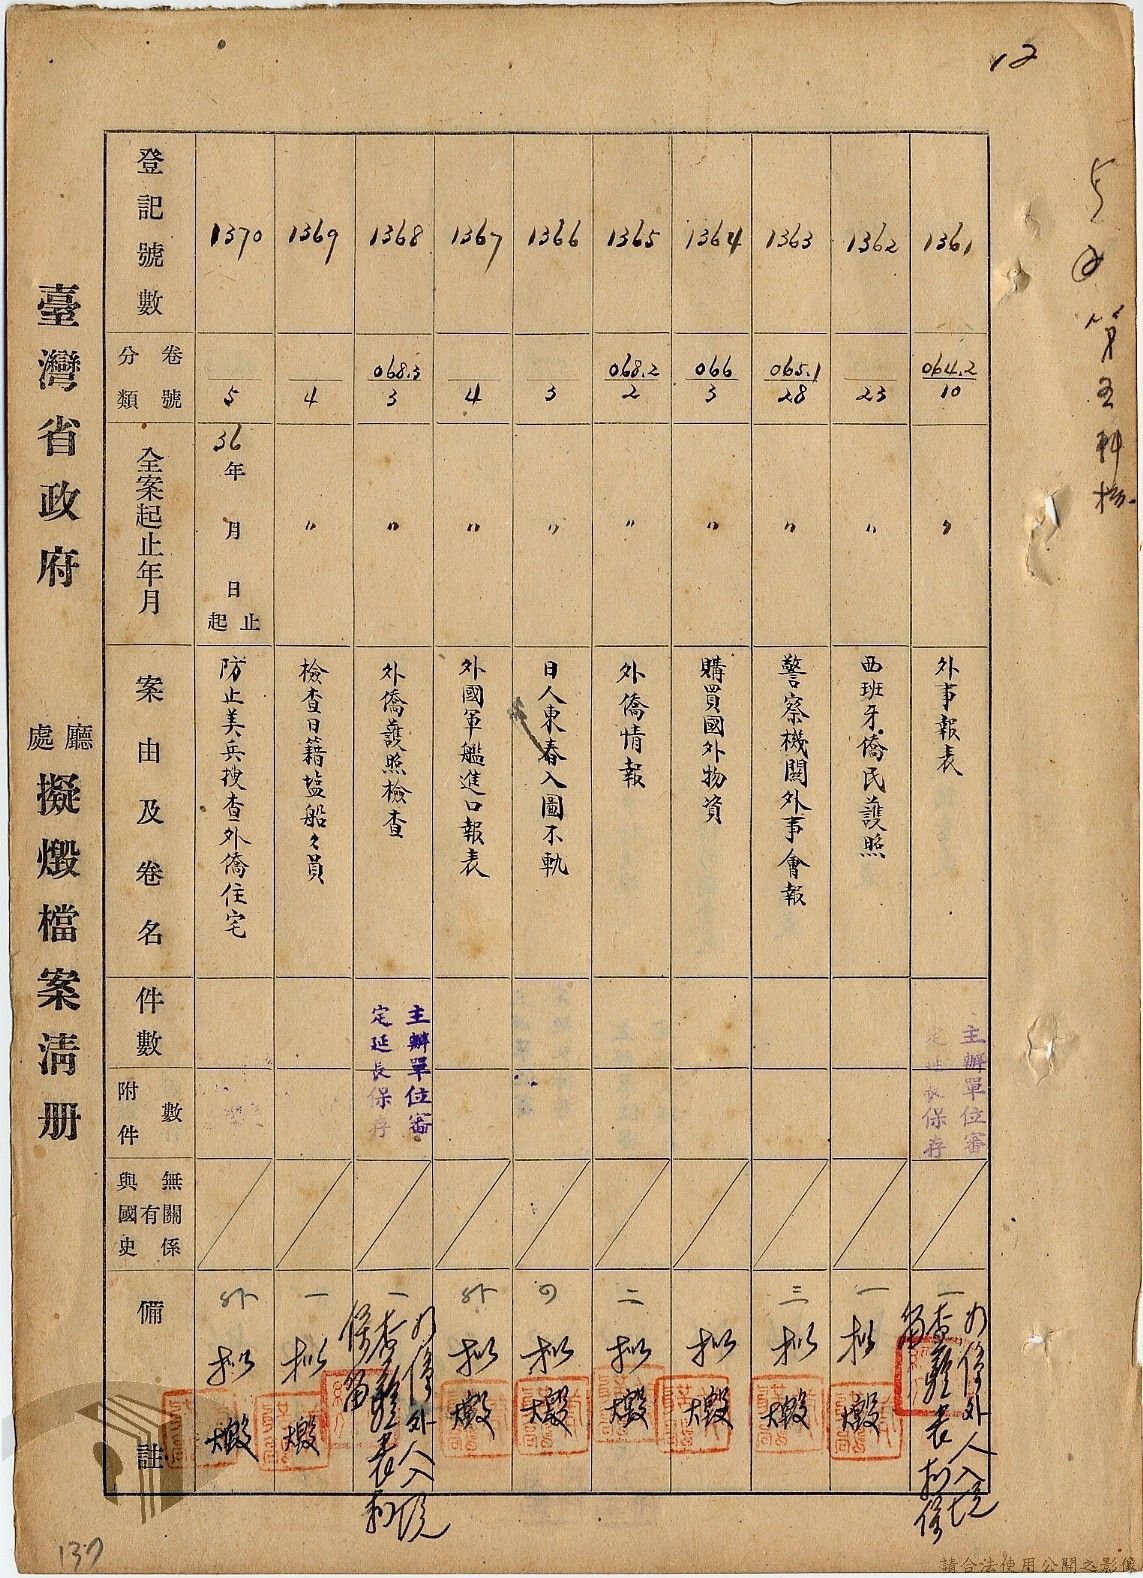 12
第五科
登記號數
分類 卷號
全案起止年月
案由及卷名
件數
附件 數
與國史 有 無關係
備註
1361
064.2
10
〃
外事報表
主辦單位審
定延長保存
一
如係外人入境
查驗表
1362
23
〃
西班牙僑民護照
一
拟燬
1363
065.1
28
〃
警察機關外事會報
三
拟燬
1364
066
3
〃
購買國外物資
拟燬
1365
068.2
2
〃
外僑情報
二
拟燬
1366
3
〃
日人東春入圖不軌
四
拟燬
1367
4
〃
外國軍艦進口報表
外
拟燬
1368
068.3
3
〃
外僑護照檢查
主辦單位審
定延長保存
一
如係外人入境
查驗表
保留
1369
4
〃
檢查日籍塩船々員
一
拟燬
1370
5
36年 月 日 起止
防止美兵搜查外僑住宅
外
拟燬
臺灣省政府 處廳 擬燬檔案清册
137
請合法使用公開之影像